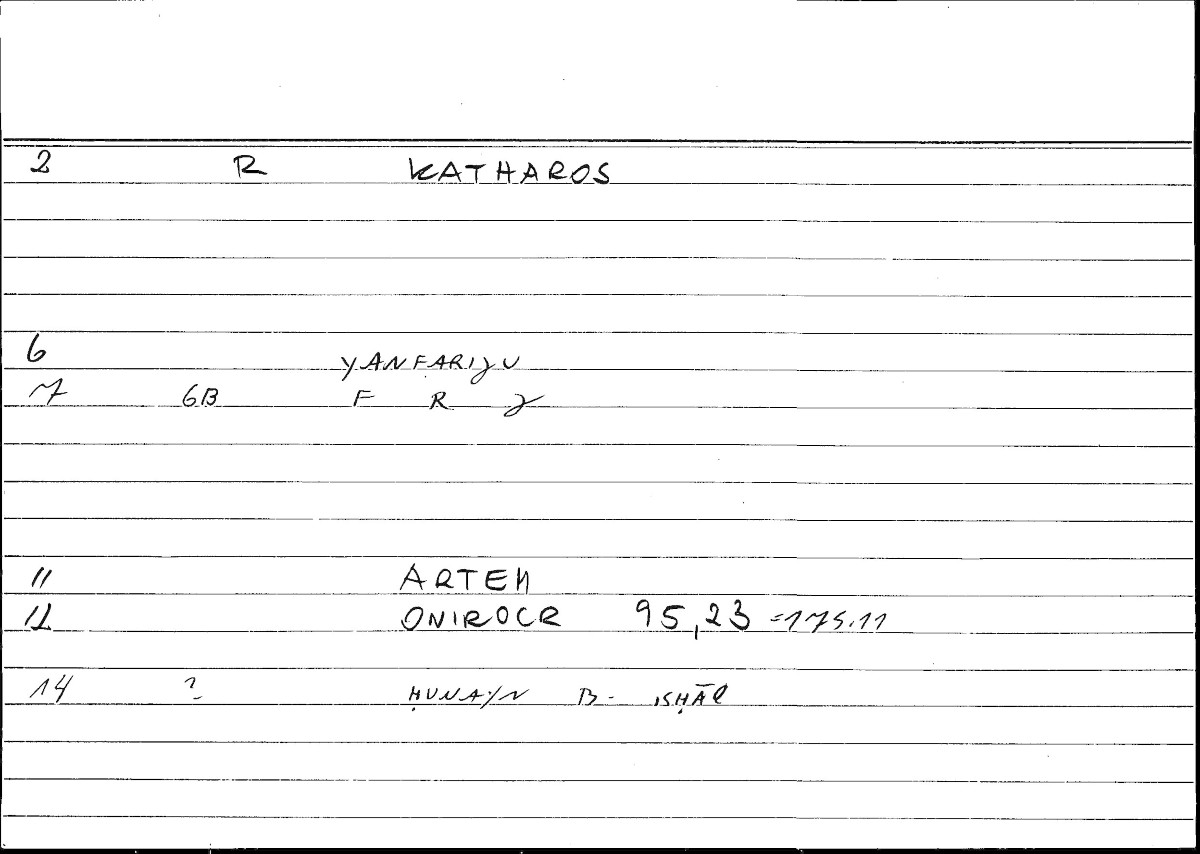 2 R KATHAROS
6 YANFARIJU
7 6B F R J
11 ARTEM
12 ONIROCR 95,23 =175.11
14 ? ḤUNAYN B- ISḤĀQ